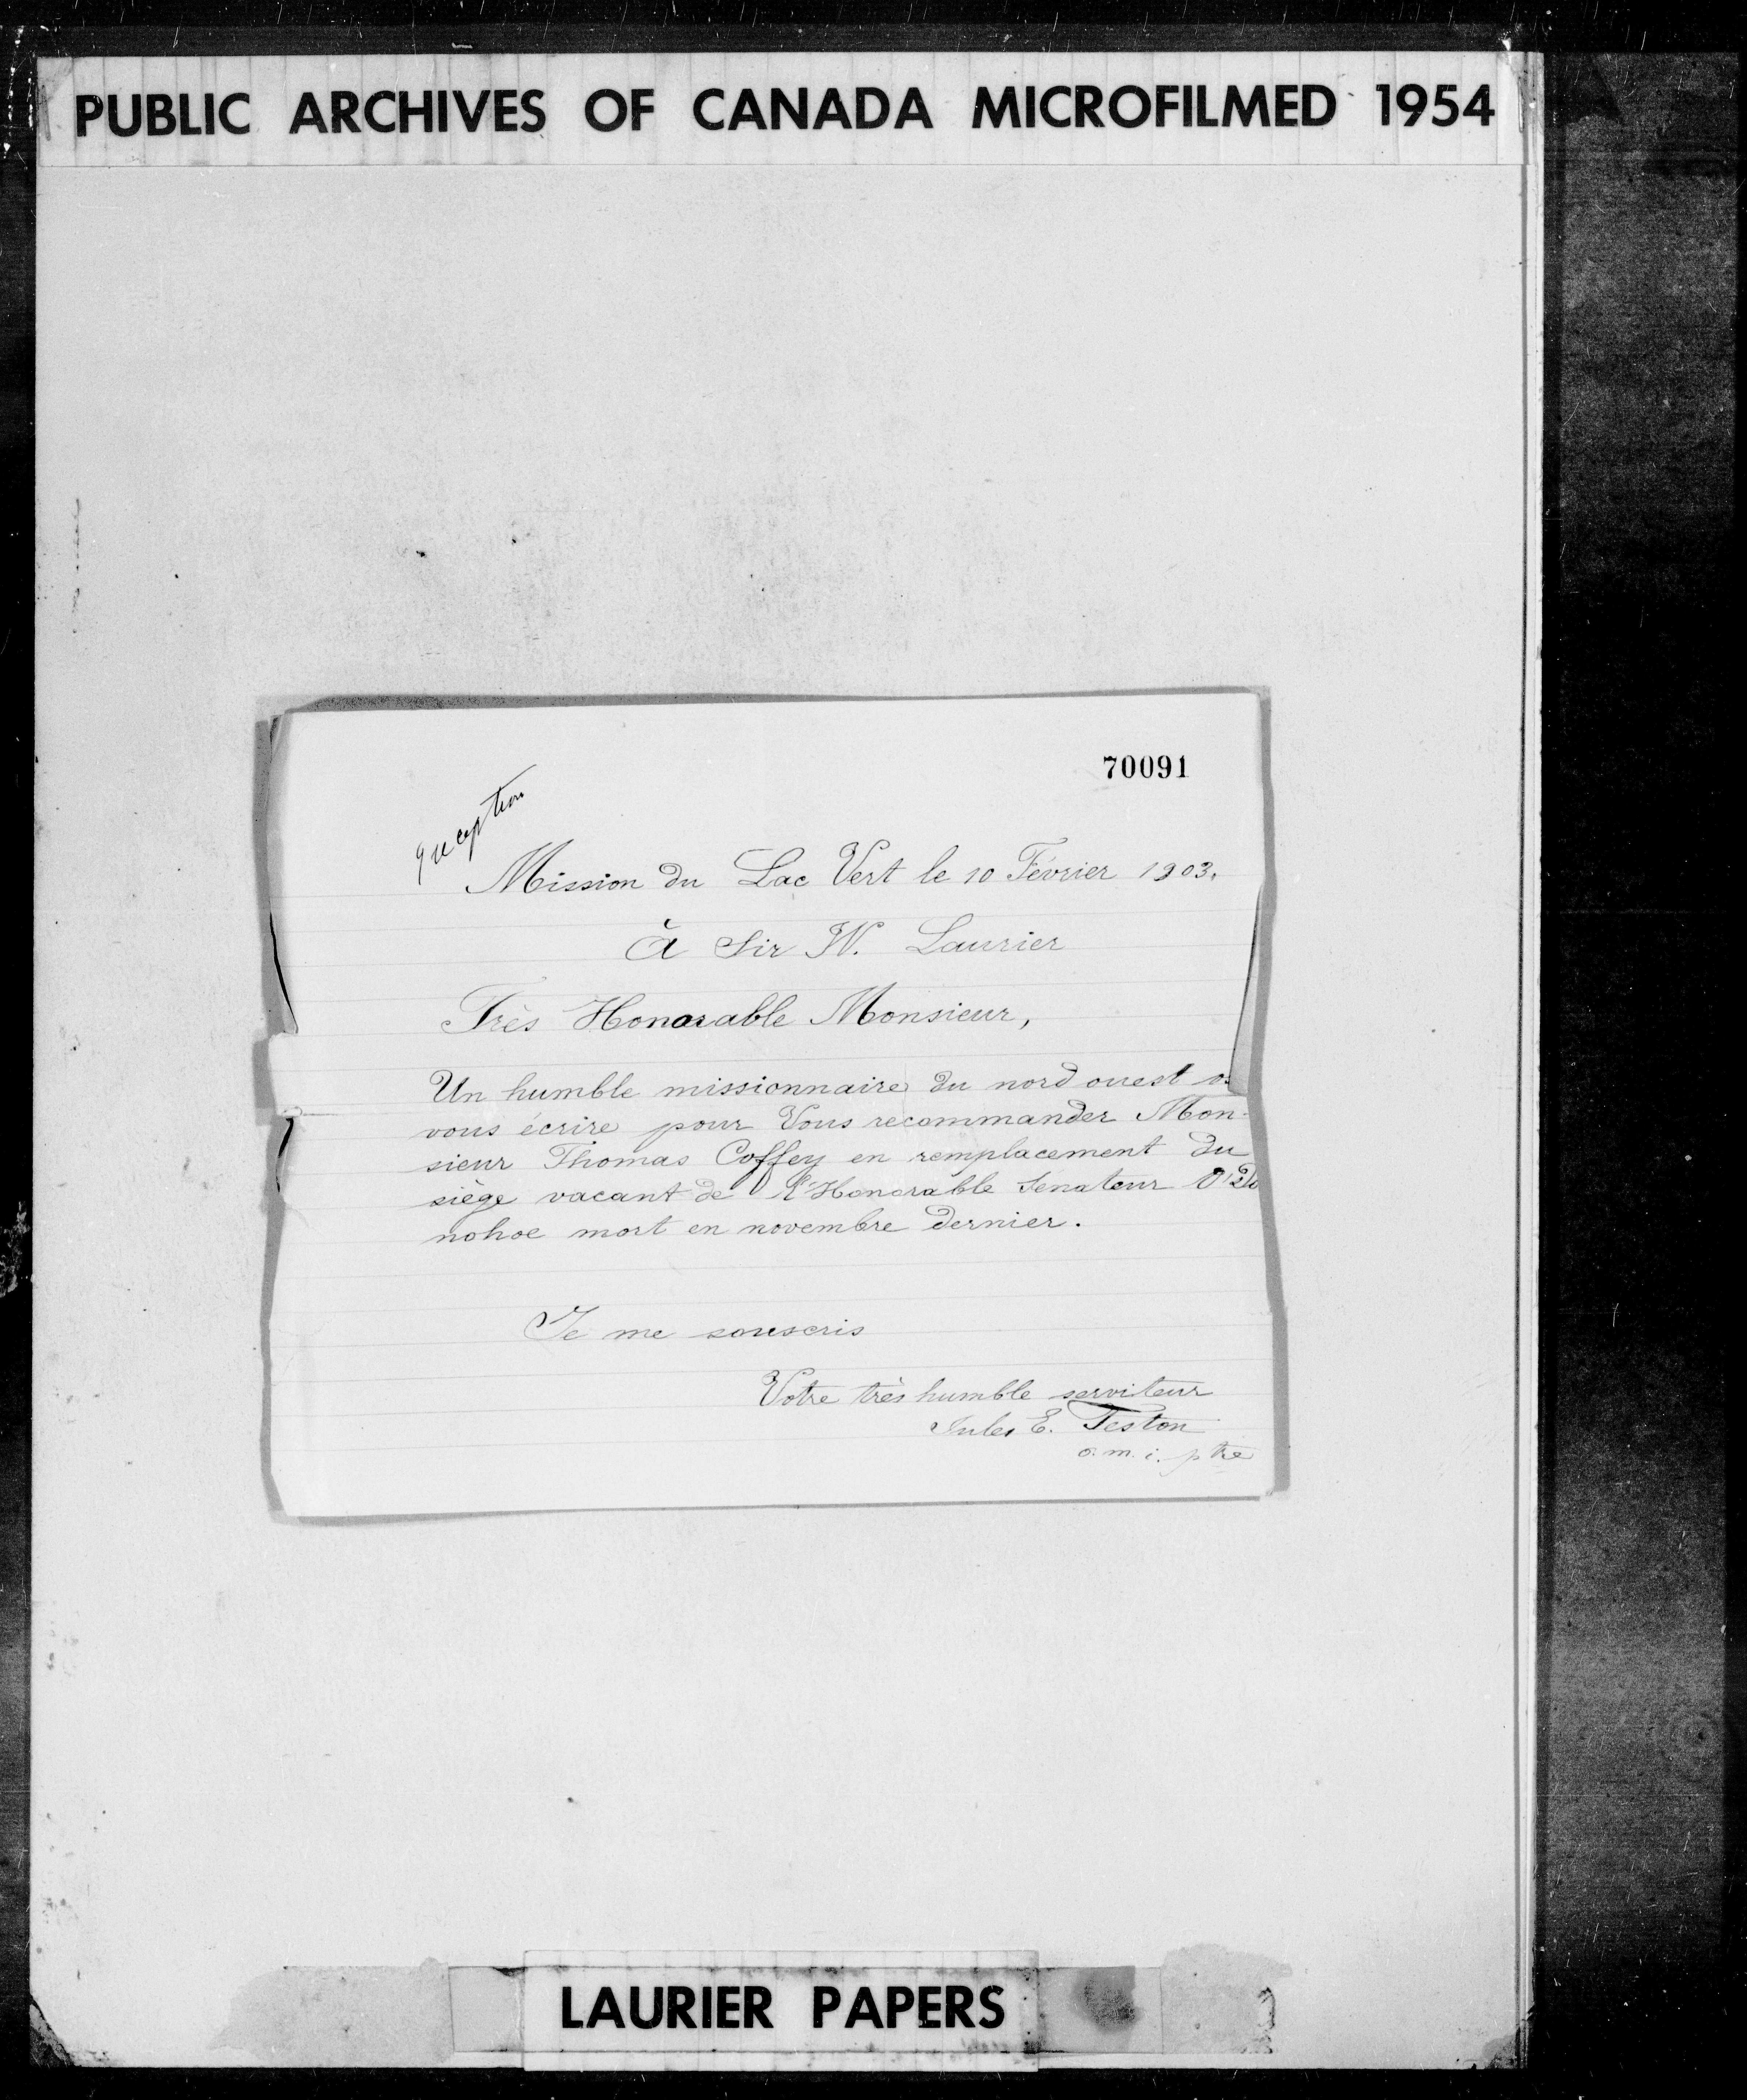 PUBLIC ARCHIVES OF CANADA MICROFILMED 1954
70091
Mission du Lac Vert le 10 Février 1903.
à Sir W. Laurier
Très Honorable Monsieur,
Un humble missionnaire du nord ouest
vous écrire pour Vous recommander Mon-
sieur Thomas Coffey en remplacement du
siège vacant de l'Honorable Sénateur O'Do
nohoe mort en novembre dernier.
Je me souscris
Votre très humble serviteur
Jules E. Teston
o.m.i. ptre
LAURIER PAPERS